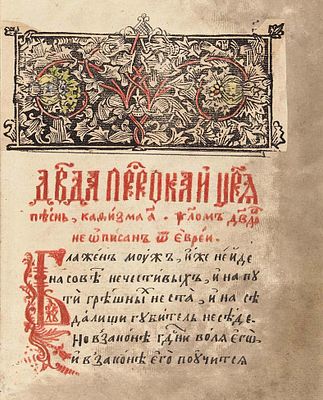 Дв҃да прⷪ҇рока и цр҃ѧ
пѣснь, каѳизма а҃. ѱаломъ дв҃дꙋ
не ѡписан ѿ еврей.
Блаженъ моужъ, иже не иде
на совѣ нечестивыхъ, и на пꙋ
ти грѣшныⷯ не ста, и на сѣ
далищи гꙋбитель не сѣде.
Но в законе гⷭ҇дни волѧ его̀
и в законѣ его поучитсѧ